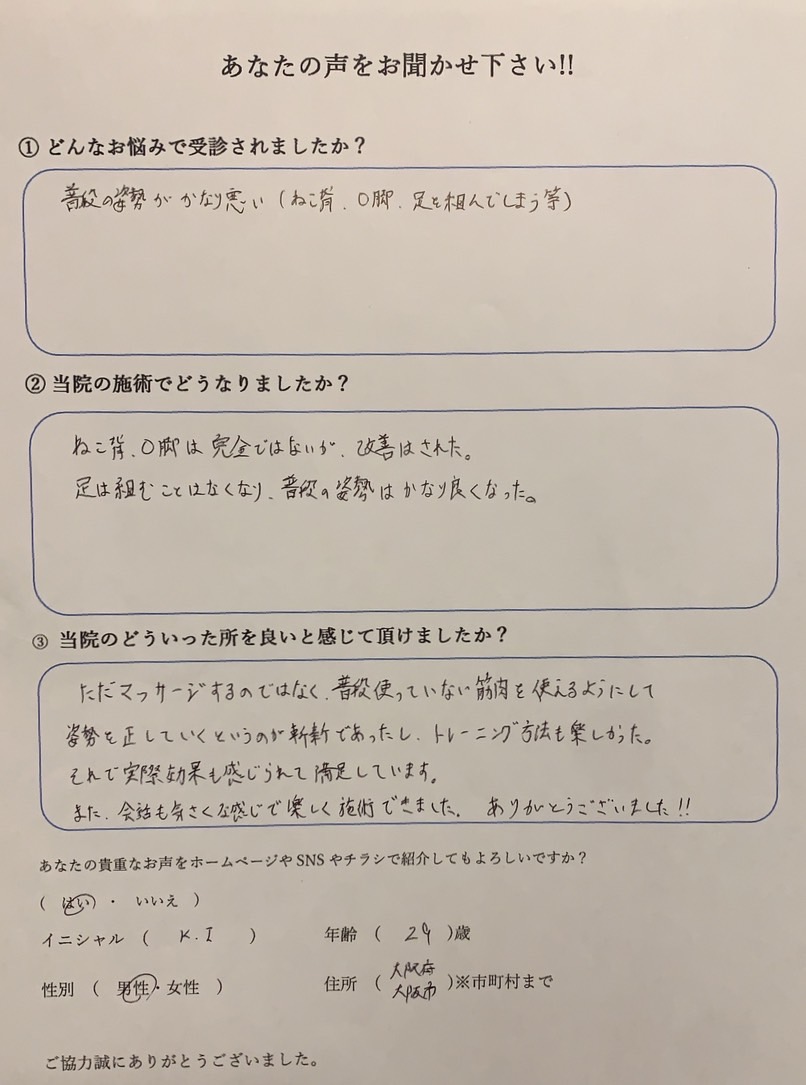 あなたの声をお聞かせ下さい!!
① どんなお悩みで受診されましたか?
普段の姿勢がかなり悪い(ねこ背、O脚、足を組んでしまう等)
② 当院の施術でどうなりましたか?
ねこ背、O脚は完全ではないが、改善はされた。
足は組むことはなくなり、普段の姿勢はかなり良くなった。
③ 当院のどういった所を良いと感じて頂けましたか?
ただマッサージするのではなく、普段使っていない筋肉を使えるようにして
姿勢を正していくというのが斬新であったし、トレーニング方法も楽しかった。
それで実際効果も感じられて満足しています。
また、会話も気さくな感じで楽しく施術できました。 ありがとうございました!!
あなたの貴重なお声をホームページやSNSやチラシで紹介してもよろしいですか?
( はい ・ いいえ )
イニシャル ( K.I ) 年齢 ( 29 )歳
性別 ( 男性・女性 ) 住所 ( 大阪府
大阪市 )※市町村まで
ご協力誠にありがとうございました。